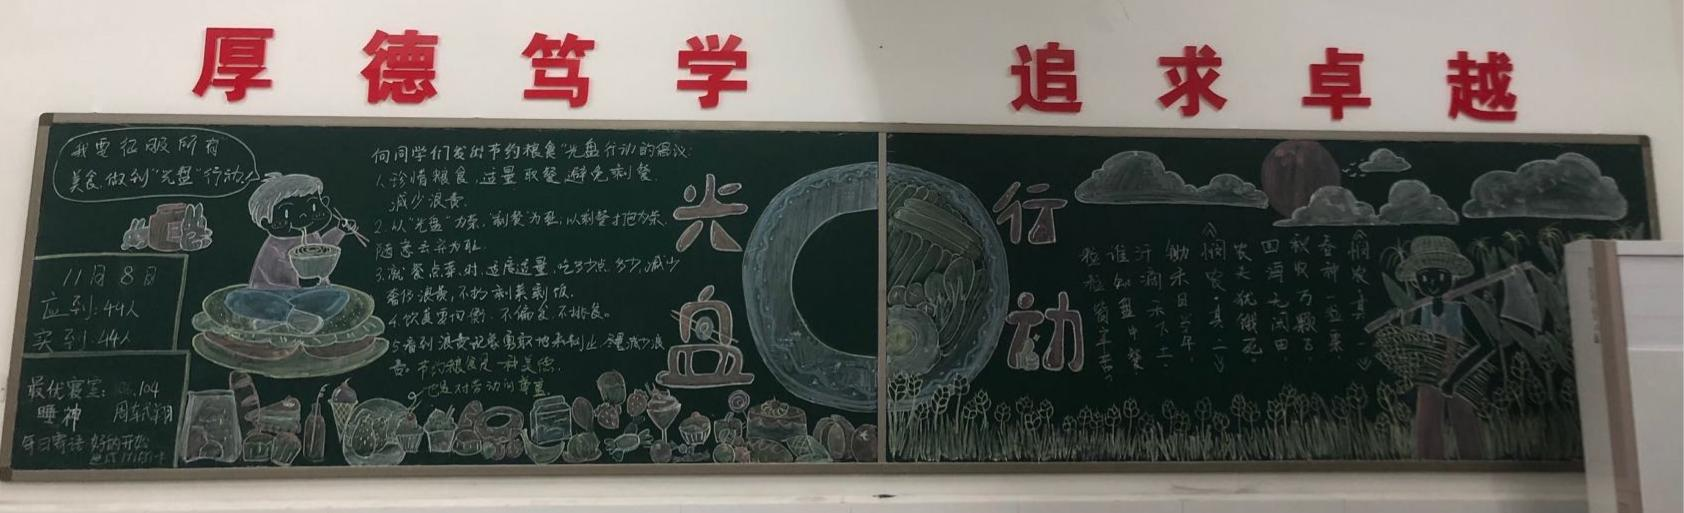 厚德笃学
追求卓越
我要征服所有
美食,做到“光盘”行动!
11月8日
应到:44人
实到:44人
最优寝室: 104
睡神
每日寄语 好的开始
向同学们发出节约粮食“光盘行动”的倡议:
1.珍惜粮食,适量取餐,避免剩餐,
减少浪费。
2.从“光盘”为荣,“剩餐”为耻,以剩餐打包为荣,
随意丢弃为耻。
3.就餐点菜时,适度适量,吃多少点多少,减少
奢侈浪费,不扔剩菜剩饭。
4.饮食要均衡,不偏食,不挑食。
5.看到浪费现象勇敢地来制止,减少浪
费。节约粮食是一种美德,
也是对劳动的尊重
光盘
行动
《悯农·其一》
春种一粒粟,
秋收万颗子。
四海无闲田,
农夫犹饿死。
《悯农·其二》
锄禾日当午,
汗滴禾下土。
谁知盘中餐
粒粒皆辛苦。